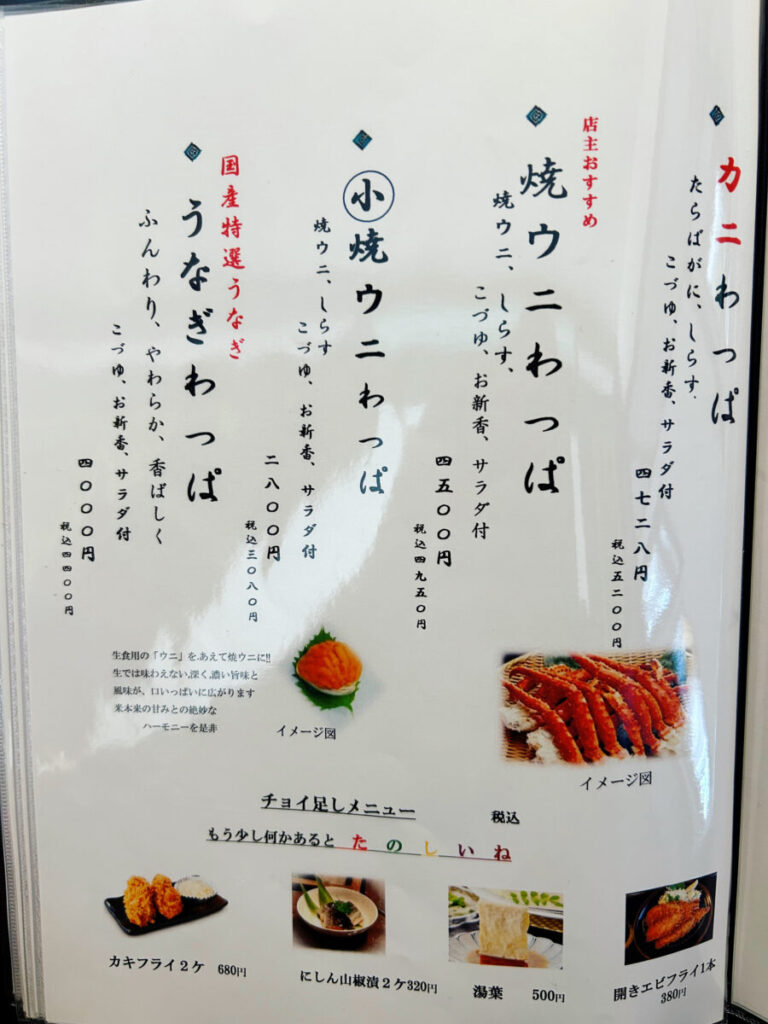 カニわっぱ
たらばがに、しらす.
こづゆ、お新香、サラダ付
四七二八円
税込五二〇〇円
店主おすすめ
焼ウニわっぱ
焼ウニ、しらす、
こづゆ、お新香、サラダ付
四五〇〇円
税込四九五〇円
小焼ウニわっぱ
焼ウニ、しらす
こづゆ、お新香、サラダ付
二八〇〇円
税込三〇八〇円
国産特選うなぎ
うなぎわっぱ
ふんわり、やわらか、香ばしく
こづゆ、お新香、サラダ付
四〇〇〇円
税込四四〇〇円
生食用の「ウニ」を,あえて焼ウニに!!
生では味わえない,深く,濃い旨味と
風味が、口いっぱいに広がります
米本来の甘みとの絶妙な
ハーモニーを是非
イメージ図
イメージ図
チョイ足しメニュー
税込
もう少し何かあると たのしいね
カキフライ2ケ 680円
にしん山椒漬2ケ320円
湯葉 500円
開きエビフライ1本
380円